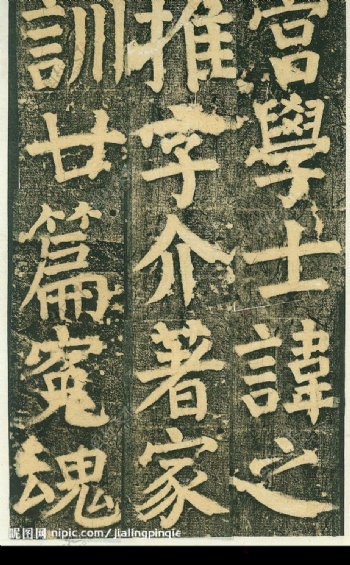 宫學士諱之
推字介著家
訓廿篇寃魂
昵图网 nipic.com/jialingpingjie